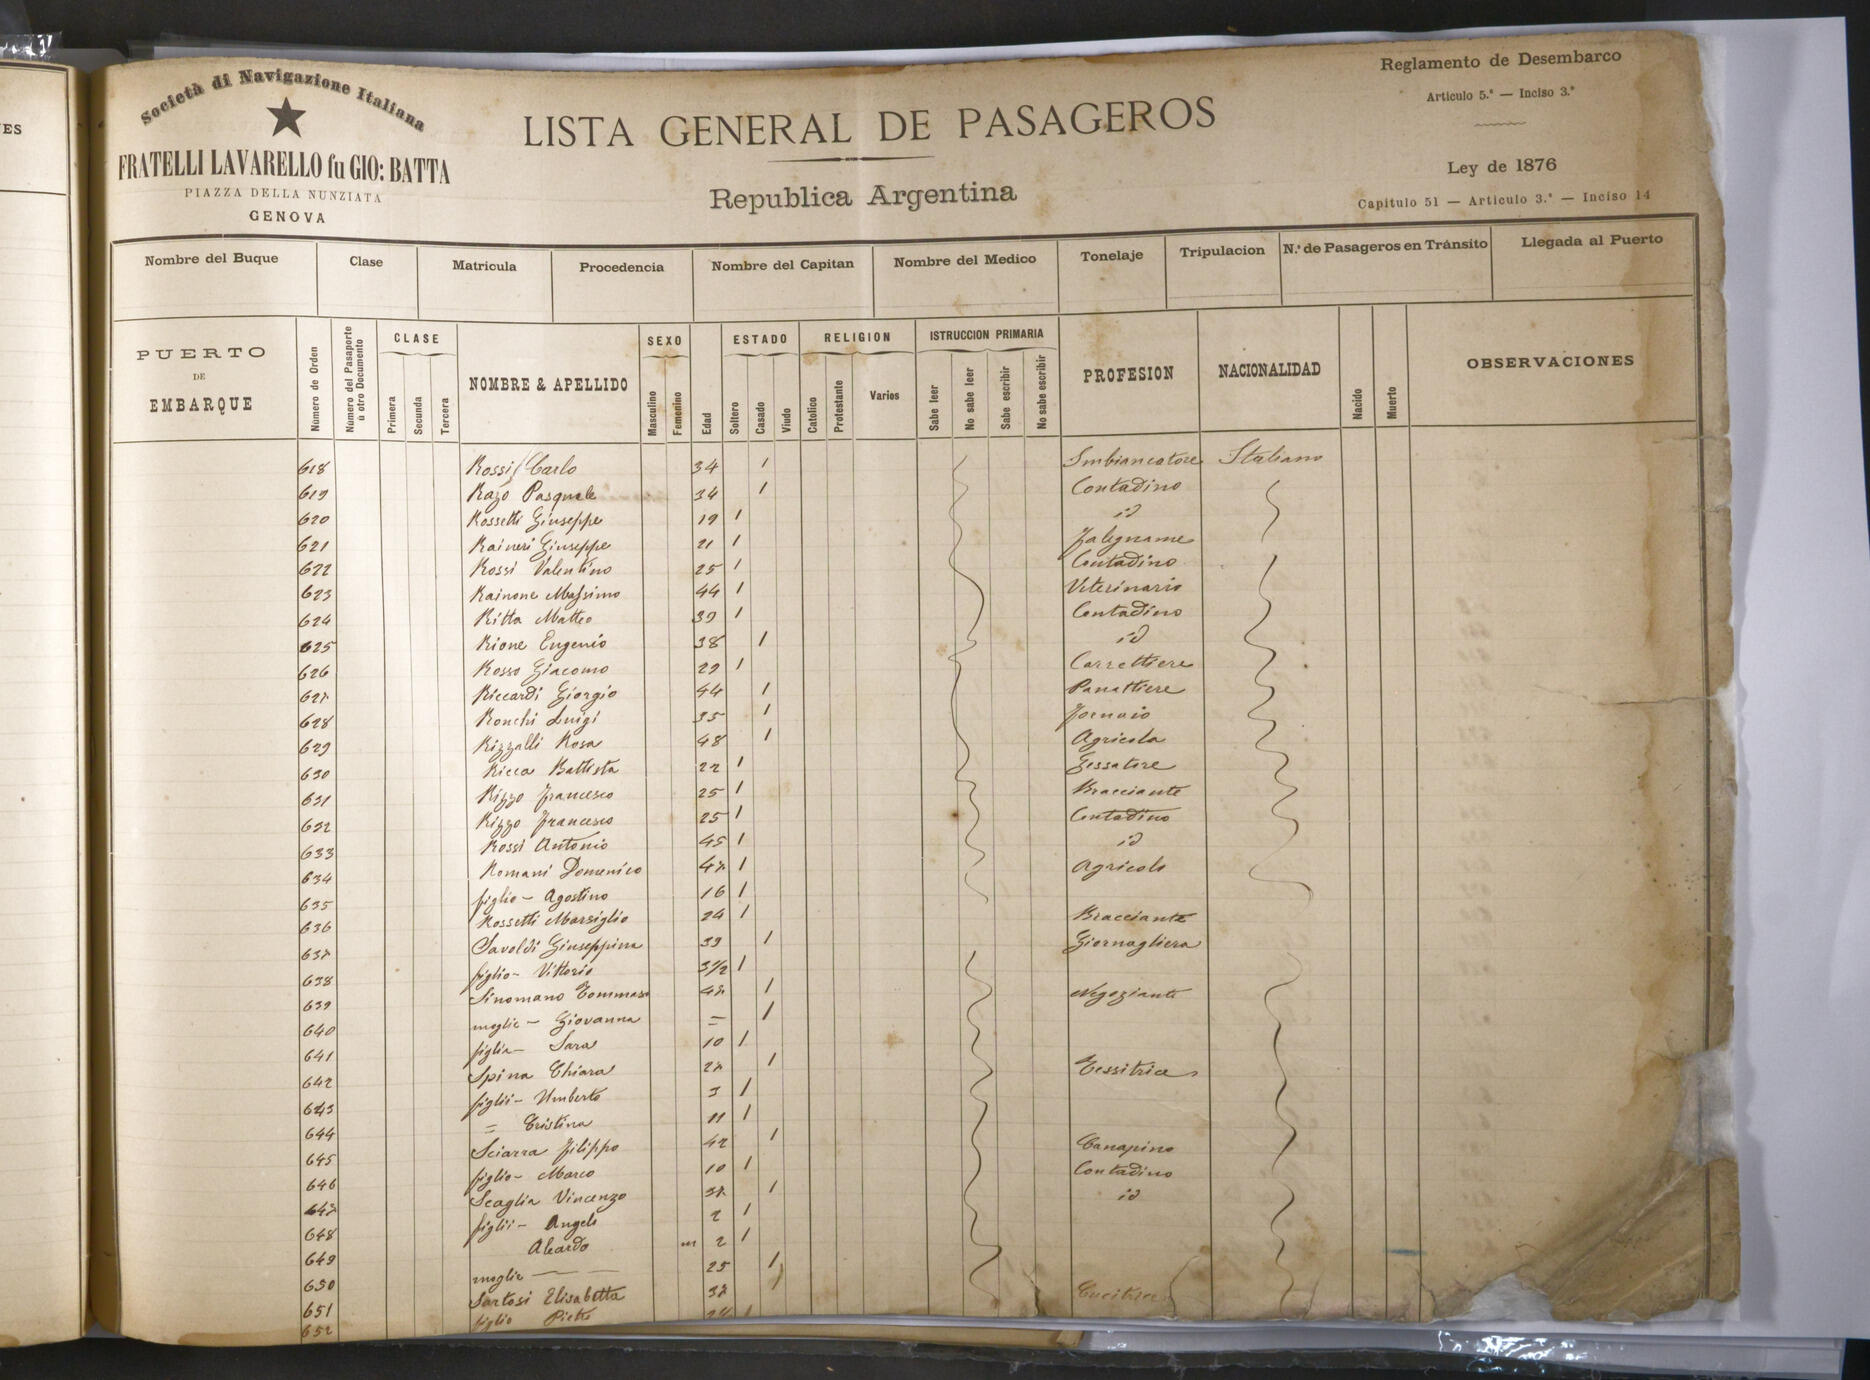 ES
Società di Navigazione Italiana
FRATELLI LAVARELLO fu GIO: BATTA
PIAZZA DELLA NUNZIATA
GENOVA
LISTA GENERAL DE PASAGEROS
Republica Argentina
Reglamento de Desembarco
Articulo 5.º — Inciso 3.º
Ley de 1876
Capitulo 51 — Articulo 3.º — Inciso 14
Nombre del Buque Clase Matricula Procedencia Nombre del Capitan Nombre del Medico Tonelaje Tripulacion N.º de Pasageros en Tránsito Llegada al Puerto
PUERTO DE EMBARQUE
Numero de Orden
Numero del Pasaporte ù otro Documento
CLASE
Primera Secunda Tercera
NOMBRE & APELLIDO
SEXO
Masculino Femenino
Edad
ESTADO
Soltero Casado Viudo
RELIGION
Catolico Protestante Varios
ISTRUCCION PRIMARIA
Sabe leer No sabe leer Sabe escribir No sabe escribir
PROFESION
NACIONALIDAD
Nacido
Muerto
OBSERVACIONES
618 Rossi Carlo 34 1 Imbiancatore Italiano
619 Razo Pasquale 34 1 Contadino
620 Rossetti Giuseppe 19 1 id
621 Raineri Giuseppe 21 1 Falegname
622 Rossi Valentino 25 1 Contadino
623 Rainone Massimo 44 1 Veterinario
624 Ritta Matteo 39 1 Contadino
625 Rione Eugenio 38 1 id
626 Rosso Giacomo 29 1 Carrettiere
627 Riccardi Giorgio 44 1 Panattiere
628 Ronchi Luigi 35 1 Fornaio
629 Rizzalli Rosa 48 1 Agricola
630 Ricca Battista 22 1 Gessatore
631 Rizzo Francesco 25 1 Bracciante
632 Rizzo Francesco 25 1 Contadino
633 Rossi Antonio 45 1 id
634 Romani Domenico 47 1 Agricolo
635 figlio - Agostino 16 1
636 Rossetti Marsiglio 24 1 Bracciante
637 Savoldi Giuseppina 39 1 Giornagliera
638 figlio - Vittorio 3 1/2 1
639 Sinomano Tommaso 47 1 Negoziante
640 moglie - Giovanna = 1
641 figlia - Sara 10 1
642 Spina Chiara 27 1 Tessitrice
643 figlii - Umberto 3 1
644 = Cristina 11 1
645 Sciarra Filippo 42 1 Canapino
646 figlio - Marco 10 1 Contadino
647 Scaglia Vincenzo 37 1 id
648 figlii - Angelo 2 1
649 Aleardo m 2 1
650 moglie — — 25 1
651 Sartosi Elisabetta 37 1 Cucitrice
652 figlio Pietro 1